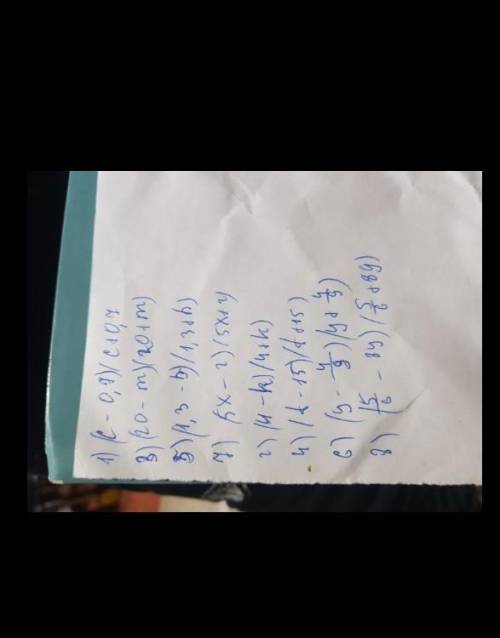 1) (c - 0,7)(c+0,7
3) (20 - m)(20+m)
5) (1,3 - b)(1,3+b)
7) (5x - 2)(5x+2)
2) (4 - k)(4+k)
4) (t - 15)(t+15)
6) (y - 4/9)(y+4/9)
8) (5/6 - 8y)(5/6+8y)